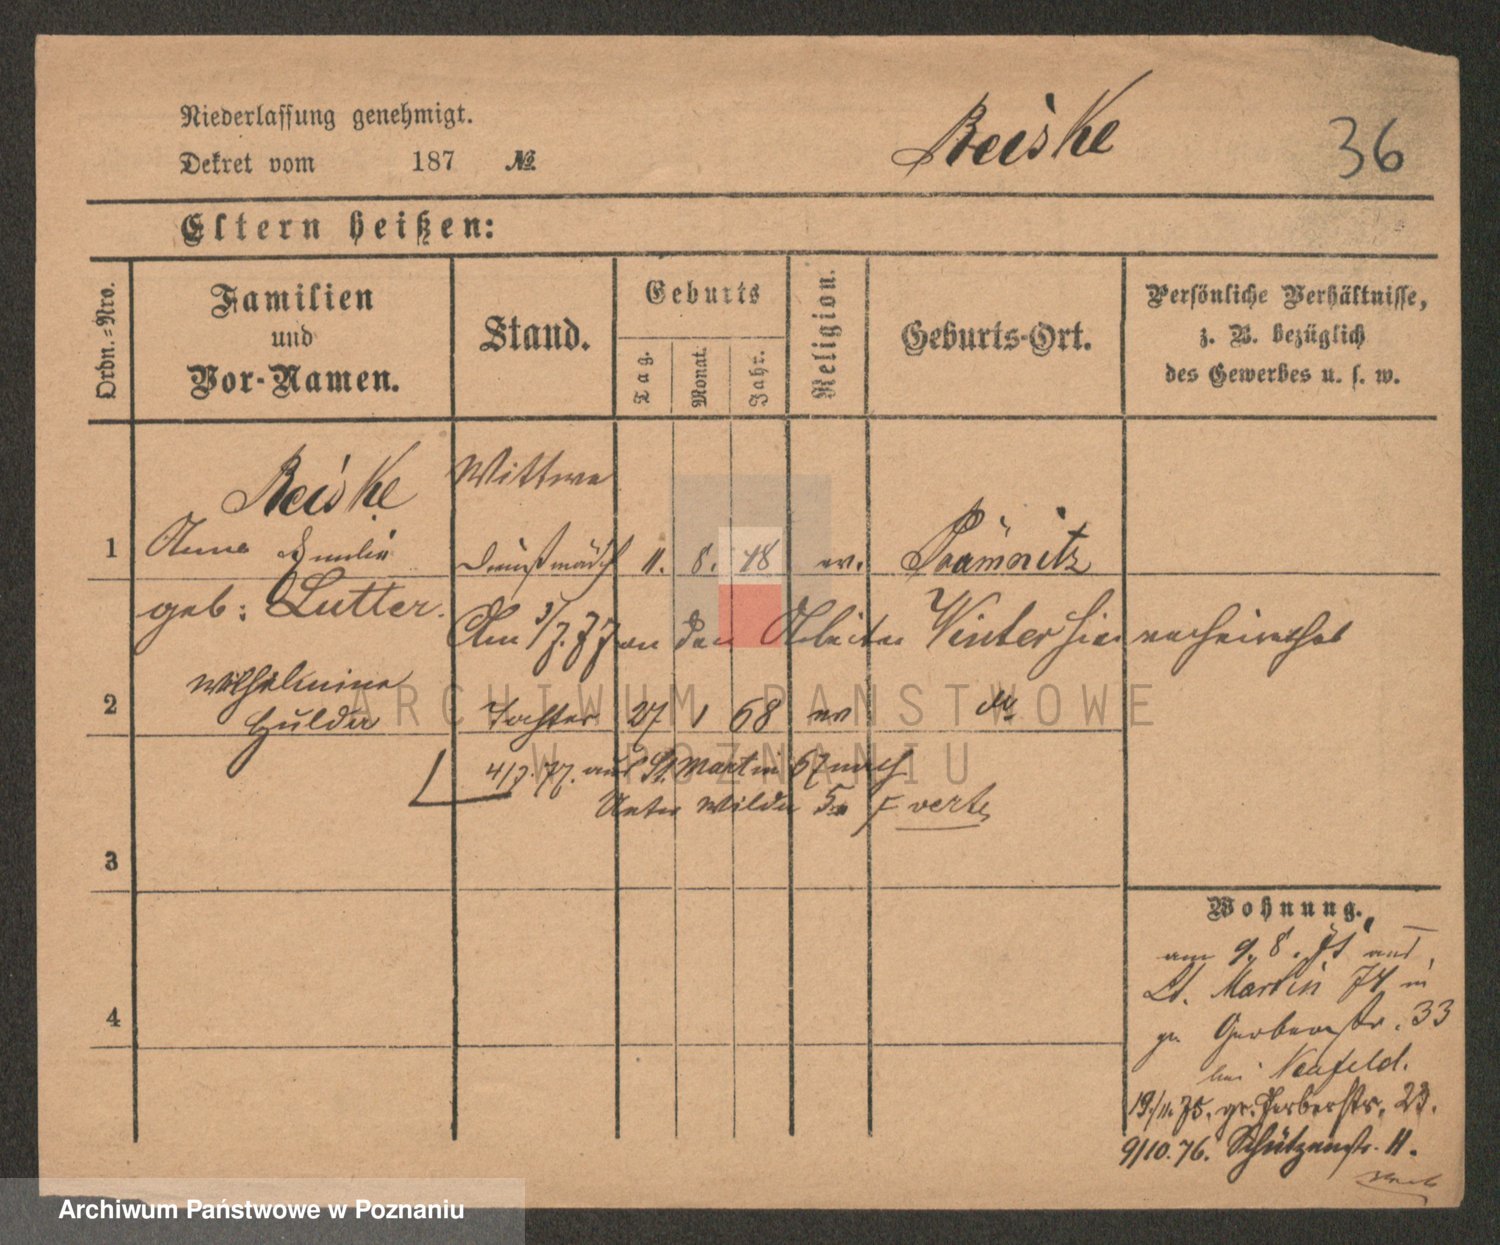 Niederlassung genehmigt.
Dekret vom 187 №
Reiske
36
Eltern heißen:
Ordn.-Nro.
Familien
und
Vor-Namen.
Stand.
Geburts
Tag.
Monat.
Jahr.
Religion.
Geburts-Ort.
Persönliche Verhältnisse,
z. B. bezüglich
des Gewerbes u. s. w.
Reiske Wittwe
1 Anna Emilie Dienstmädch 11. 8. 48 ev.
geb: Lutter.
Am 3/7. 77 an den Arbeiter Winter hier verheirathet
Wilhelmine
2 Hulda Tochter 27 1 68 ev do
4/7. 77. aus St. Martin 67 nach
Unter Wilda 5a verte
3
4
Wohnung.
am 9. 8. 75 aus
St. Martin 74 in
gr. Gerberstr. 33
bei Neufeld.
19/11. 75. gr. Gerberstr. 23.
9/10. 76. Schützenstr. 11.
ARCHIWUM PAŃSTWOWE
W POZNANIU
Archiwum Państwowe w Poznaniu